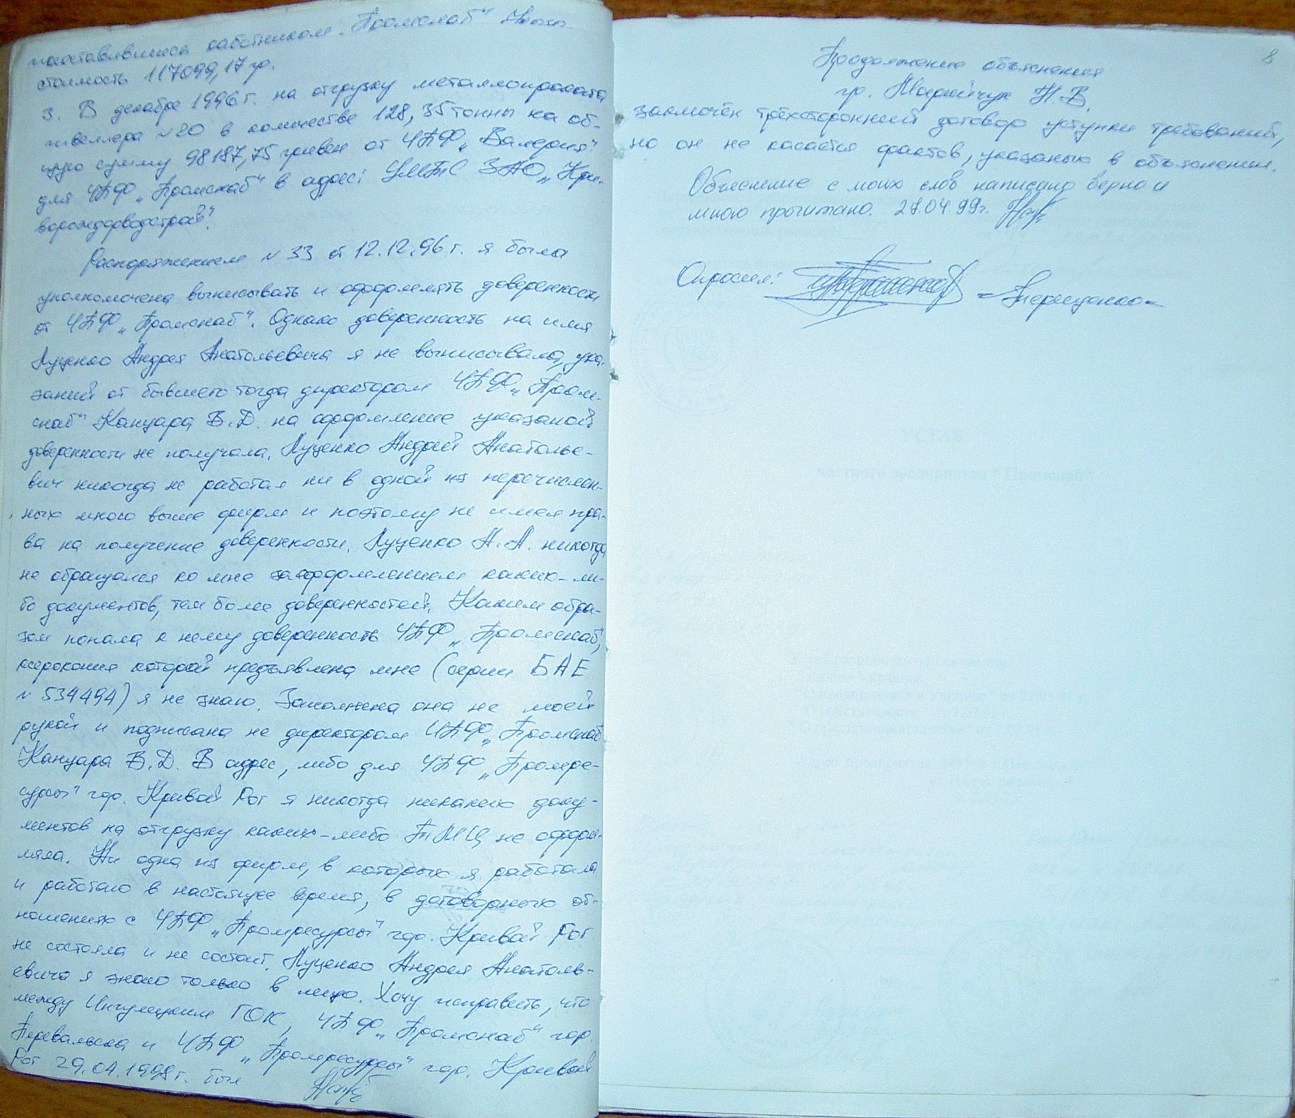 стоимость 117099,17 гр.
3. В декабре 1996 г. на отгрузку металлопроката
швеллера № 20 в количестве 128,35 тонны на об-
щую сумму 98187,75 гривен от ЧПФ „Валерия"
для ЧПФ „Промснаб" в адрес: УМТС ЗАО „Кри-
ворождоводстрой".
Распоряжением № 33 от 12.12.96 г. я была
уполномочена выписывать и оформлять доверенности
от ЧПФ „Промснаб". Однако доверенность на имя
Луценко Андрея Анатольевича я не выписывала, ука-
заний от бывшего тогда директором ЧПФ „Пром-
снаб" Канцара В.Д. на оформление указаной
доверенности не получала. Луценко Андрей Анатолье-
вич никогда не работал ни в одной из перечислен-
ных мною выше фирм и поэтому не имел пра-
ва на получение доверенности. Луценко А.А. никогда
не обращался ко мне за оформлением каких-ли-
бо документов, тем более доверенностей. Каким обра-
зом попала к нему доверенность ЧПФ „Промснаб",
ксерокопия которой предъявлена мне (серии БАЕ
№ 534494) я не знаю. Заполнена она не моей
рукой и подписана не директором ЧПФ „Промснаб"
Канцара В.Д. В адрес, либо для ЧПФ „Промре-
сурсы" гор. Кривой Рог я никогда никаких доку-
ментов на отгрузку каких-либо ТМЦ не оформ-
ляла. Ни одна из фирм, в которых я работала
и работаю в настоящее время, в договорных от-
ношениях с ЧПФ „Промресурсы" гор. Кривой Рог
не состояла и не состоит. Луценко Андрея Анатоль-
евича я знаю только в лицо. Хочу исправить, что
между Ингулецким ГОК, ЧПФ „Промснаб" гор.
Перевальска и ЧПФ „Промресурсы" гор. Кривой
Рог 29.04.1998 г. был
8
Продолжение объяснения
гр. Н.В.
заключён трёхсторонний договор уступки требований,
но он не касается фактов, указаных в объяснении.
Объяснение с моих слов написано верно и
мною прочитано. 28.04.99г.
Опросил: Терещенко
УСТАВ
частного предприятия " Промснаб"